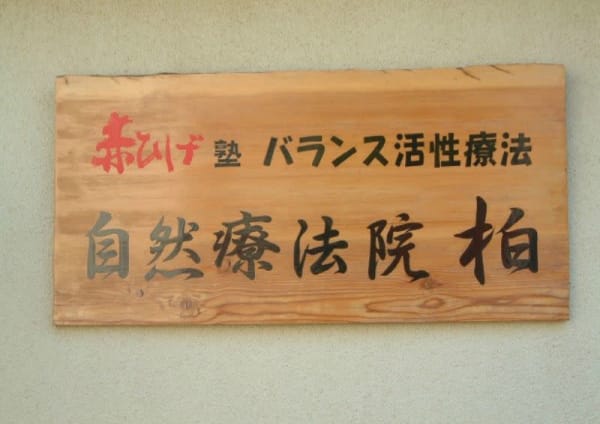 赤ひげ塾 バランス活性療法
自然療法院 柏